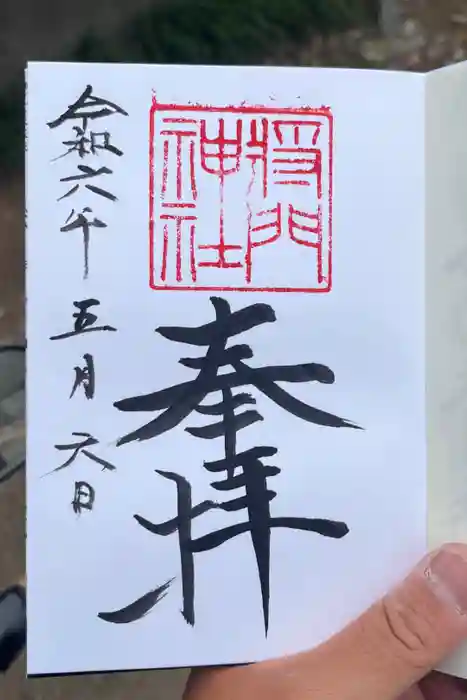 将門
神社
奉拝
令和六年五月六日